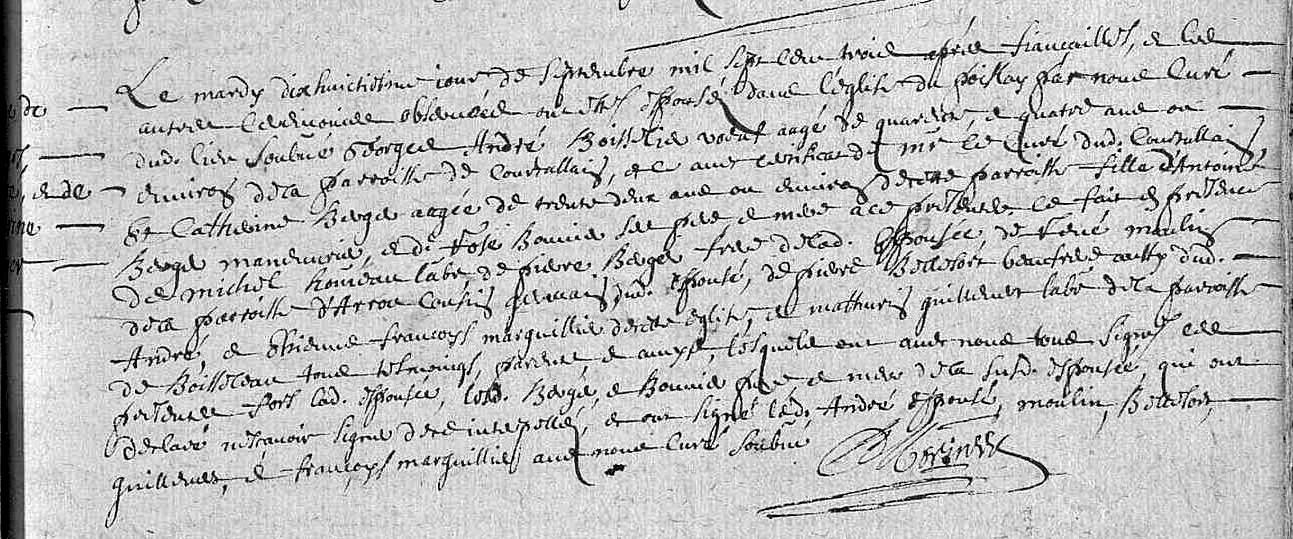 Le mardy dixhuictiesme iour de septembre mil sept cens trois aprés fiançailles, et les
autres ceremonies observées ont estés espousés dans l'eglise du poislay par nous curé
dud. lieu soubné George André Boisselier voeuf aagé de quarente, et quatre ans ou
environ de la parroisse de Courtallain, et avec certificat de mr le curé dud. Courtallain,
et Catherine Berge aagée de trente deux ans ou environ de cette parroisse fille d'Antoine
Berge manouvrier, et de Bonnier ses pere et mere a ce presents. Ce fait en presence
de michel labr de pierre Berge frere de lad. espousée, de René moulin
de la parroisse d'Arrou cousin germain dud. espousé, de pierre Bellesort beaufrere aussy dud.
André, et Estienne françoys marguillier de cette eglise, et mathurin guillemet labr de la parroisse
de Boisseleau tous tesmoings, parents et amys, lesquels ont avec nous tous signé les
presentes fors lad. espousée, lesd. Berge, et Bonnier pere et mere de la susd. espousée, qui ont
declaré ne sçavoir signer de ce interpellés, et ont signé led. André espousé, moulin, Bellesort,
guillemet, et françoys marguillier avec nous curé soubné